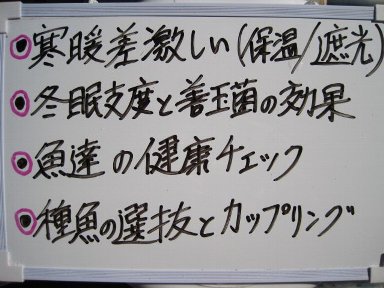 寒暖差激しい(保温/遮光)
冬眠支度と善玉菌の効果
魚達の健康チェック
種魚の選抜とカップリング